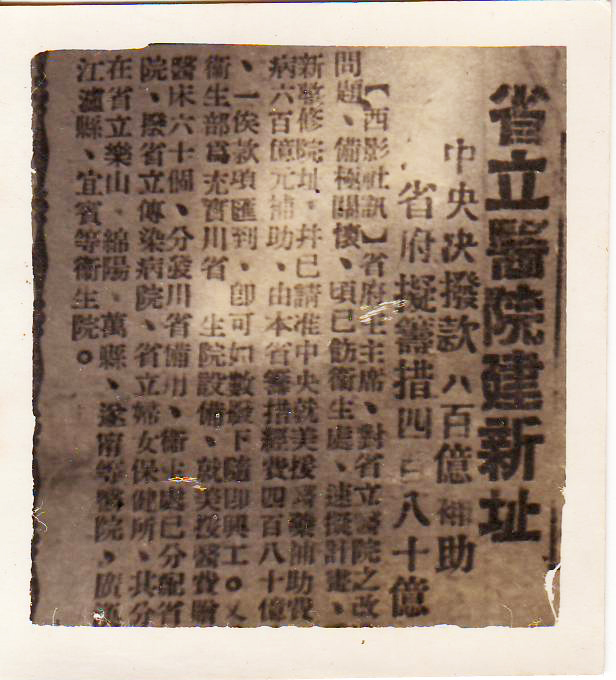 省立醫院建新址
中央决撥款八百億補助
省府擬籌措四百八十億
【西影社訊】省府王主席、對省立醫院之改
問題、備極關懷、頃已飭衞生處、速擬計畫、
新整修院址、并已請准中央就美援醫藥補助費
病六百億元補助、由本省籌措經費四百八十億
、一俟款項匯到、卽可如數撥下隨卽興工。又
衞生部爲充實川省 生院設備、就美援醫費贈
醫床六十個、分發川省備用、衞生處已分配省
院、撥省立傳染病院、省立婦女保健所、其分
在省立樂山、綿陽、萬縣、遂甯等醫院、廣
江瀘縣、宜賓等衞生院。